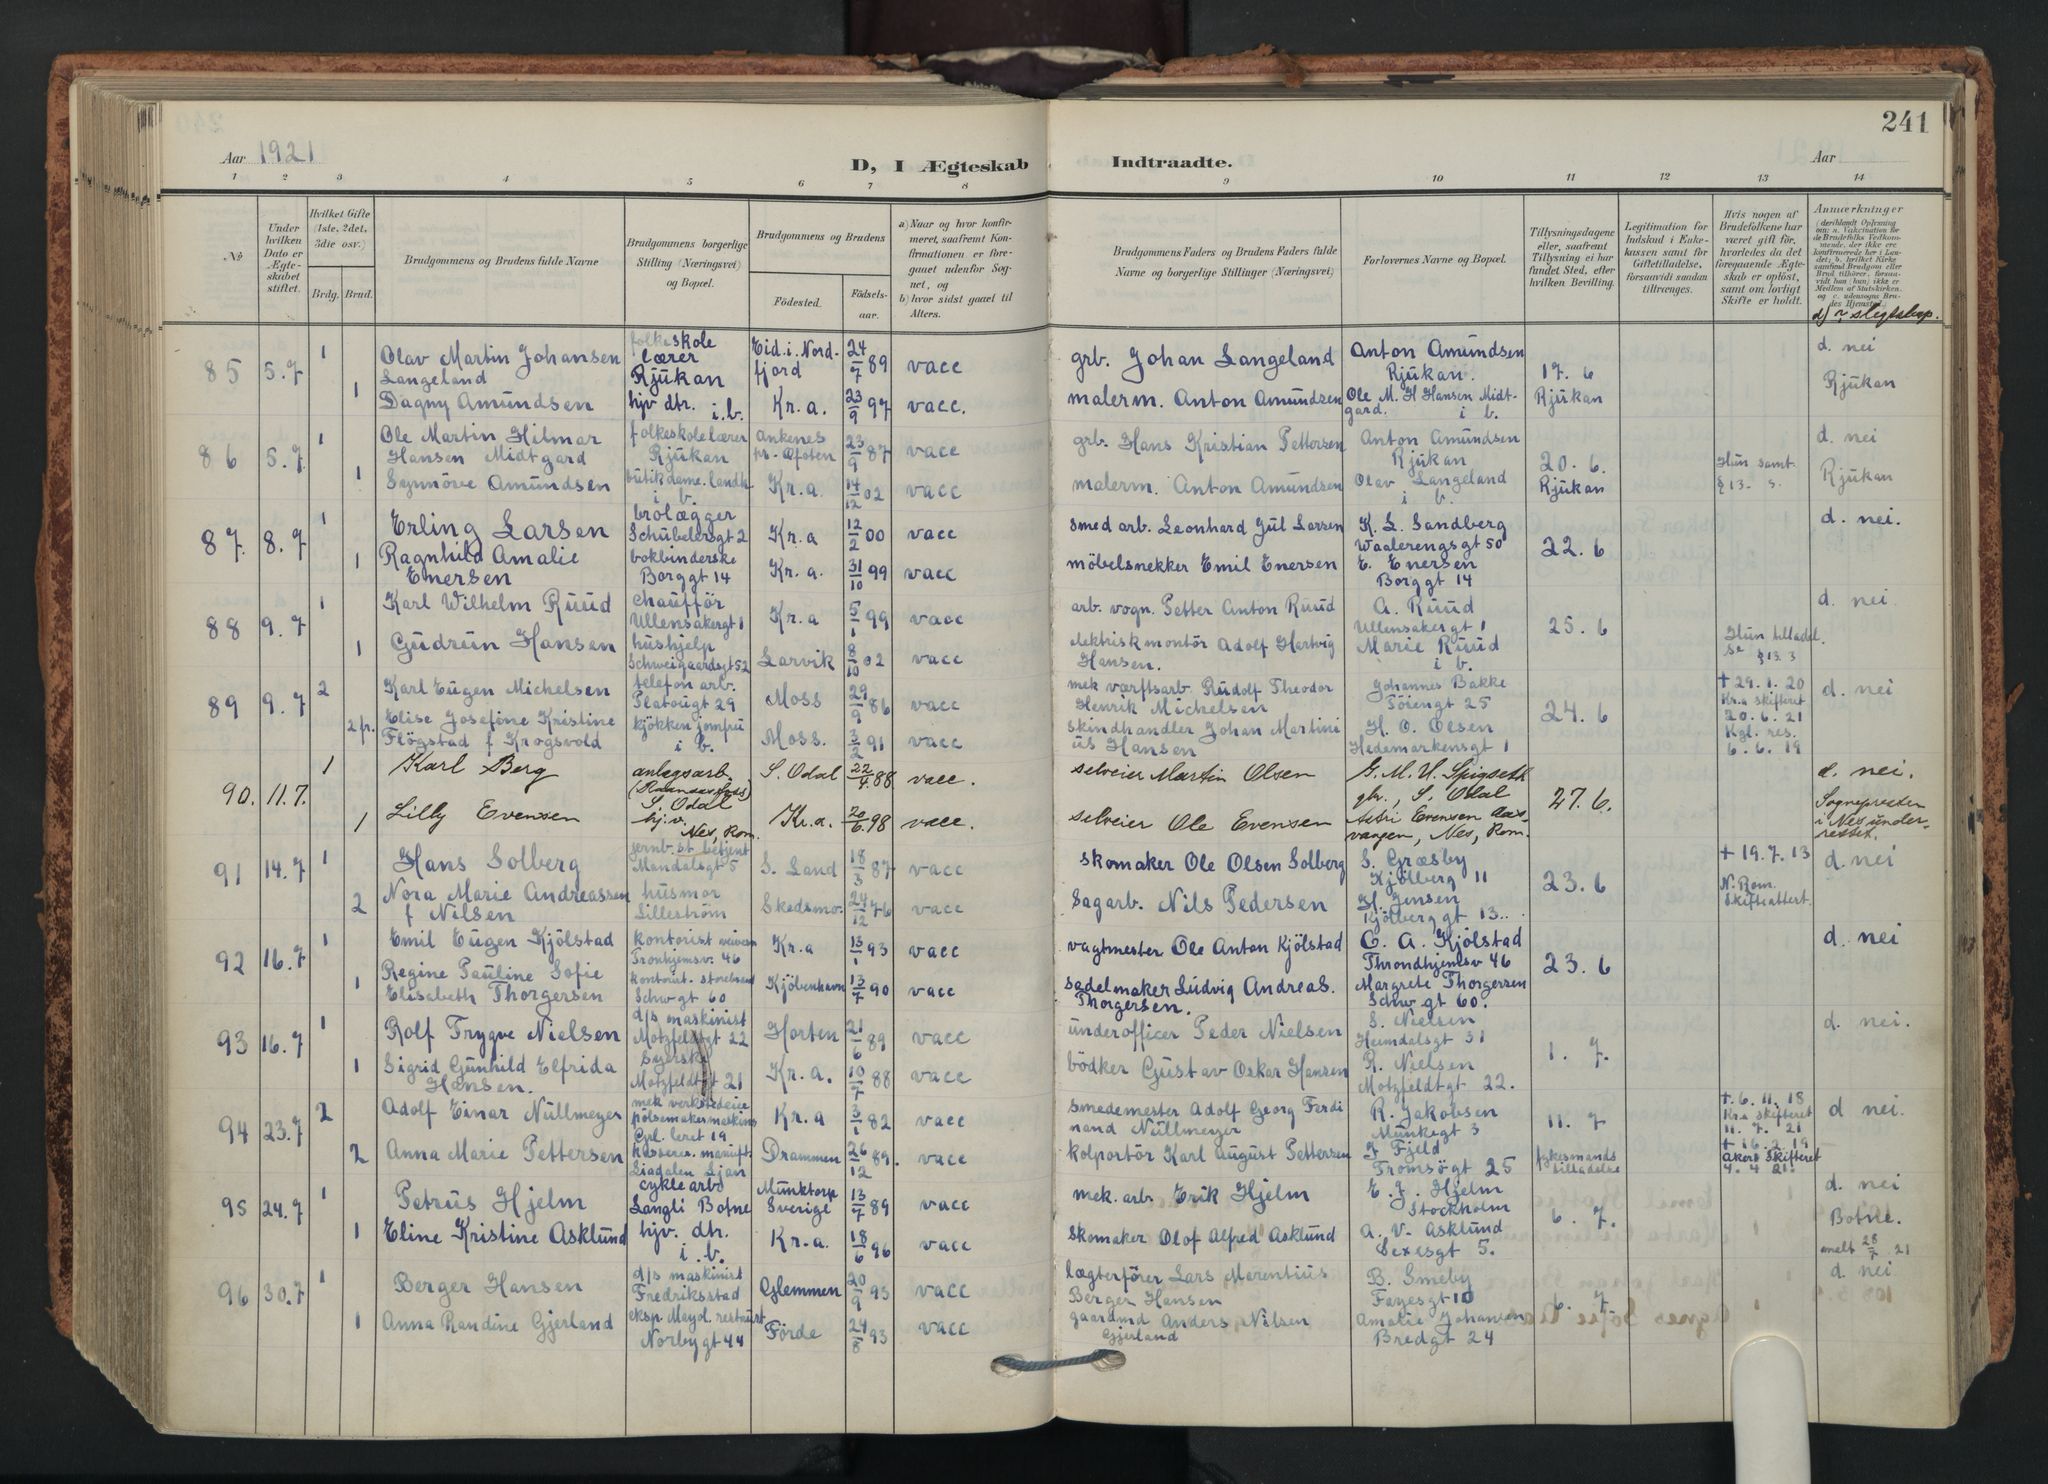 241
Aar 1921
D, I Ægteskab Indtraadte.
Aar
1 2 3 4 5 6 7 8 9 10 11 12 13 14
No
Under hvilken Dato er Ægteskabet stiftet.
Hvilket Gifte (1ste, 2det, 3die osv.)
Brdg. Brud.
Brudgommens og Brudens fulde Navne
Brudgommens borgerlige Stilling (Næringsvei) og Bopæl.
Brudgommens og Brudens
Födested. Födselsaar.
a) Naar og hvor konfirmeret, saafremt Konfirmationen er foregaaet udenfor Sognet, og
b) hvor sidst gaaet til Alters.
Brudgommens Faders og Brudens Faders fulde Navne og borgerlige Stillinger (Næringsvei)
Forlovernes Navne og Bopæl.
Tillysningsdagene eller, saafremt Tillysning ei har fundet Sted, efter hvilken Bevilling.
Legitimation for Indskud i Enkekassen samt for Giftetilladelse, forsaavidt saadan tiltrænges.
Hvis nogen af Brudefolkene har været gift för, hvorledes da det foregaaende Ægteskab er oplöst, samt om lovligt Skifte er holdt.
Anmærkninger
d) ? slegtskap.
85 5.7 1 Olav Martin Johansen Langeland folkeskole lærer Rjukan Eid i Nordfjord 24/7 89 vacc grb. Johan Langeland Anton Amundsen Rjukan. 17. 6 Rjukan d. nei Rjukan
1 Dagny Amundsen hjv dtr. i.b. Kr.a. 23/9 97 vacc. malerm. Anton Amundsen Ole M. H Hansen Midtgard. i b.
86 5.7 1 Ole Martin Hilmar Hansen Midtgard folkeskolelærer Rjukan Ankenes pr. Ofoten 23/9 87 vacc grb. Hans Kristian Pettersen Anton Amundsen Rjukan 20. 6. Rjukan d. nei Rjukan
1 Synnöve Amundsen butikdame. landh i b. Kr.a. 14/12 02 vacc malerm. Anton Amundsen Olav Langeland i b. Hun samt. § 13. s.
87. 8.7 1 Erling Larsen brolægger Schubelersgt 2 Kr.a 12/2 00 vacc smed arb. Leonhard Jul Larsen K. L. Sandberg Waalerengsgt 50 22. 6 d. nei.
1 Ragnhild Amalie Enersen bokbinderske Borggt 14 Kr.a. 31/10 99 vacc möbelsnekker Emil Enersen E. Enersen Borggt 14
88 9.7 1 Karl Wilhelm Ruud chaufför Ullensakergt 1 Kr.a 5/1 99 vacc arb. vogn. Petter Anton Ruud A. Ruud Ullensakergt 1 25. 6 d. nei.
1 Gudrun Hansen hushjelp Schweigaardsgt 52 Larvik 8/10 02 vacc elektriskmontör Adolf Hartvig Hansen. Marie Ruud i b. Hun tilladel. se § 13. 3
89 9.7 2 Karl Eugen Michelsen telefon arb. Platougt 29 Moss 29/9 86 vacc mek værftsarb. Rudolf Theodor Henrik Michelsen Johannes Bakke Töiengt 25 24. 6 + 29. 1. 20 Kr.a skifteret 20. 6. 21 d. nei
2 fr. Elise Josefine Kristine Flögstad f Krogsvold kjökken jomfru i b. Moss. 3/2 91 vacc skindhandler Johan Martinius Hansen H. O. Olsen Hedemarkensgt 1 Kgl. res. 6. 6. 19
90. 11.7. 1 Karl Berg anlægsarb. S. Odal S. Odal 22/4 88 vacc. selveier Martin Olsen G. M. U. Spigseth gbr., S. Odal 27. 6. d. nei.
1 Lilly Evensen hj.v. Nes, Rom. Kr.a. 20/6 98 vacc. selveier Ole Evensen Evensen Aasvangen, Nes, Rom. Sognepresten i Nes underrettet.
91 14.7 1 Hans Solberg jernb. st. betjent Mandalsgt 5 S. Land 18/3 87 vacc skomaker Ole Olsen Solberg S. Græsby Kjölberg 11 23. 6 + 19. 7. 13 d. nei
2 Nora Marie Andreassen f Nilsen husmor Lilleström Skedsmo. 24/12 76 vacc Sagarb. Nils Pedersen H. Jensen Kjölberggt 13.. N. Rom. Skifteattest.
92 16.7 1 Emil Eugen Kjölstad kontorist Tronhjemsv. 46 Kr.a 13/1 93 vacc vagtmester Ole Anton Kjölstad C. A. Kjölstad Throndhjemsv 46 23. 6 d. nei
1 Regine Pauline Sofie Elisabeth Thorgersen kontorist. Schw gt 60 Kjöbenhavn 13/7 90 vacc sadelmaker Ludvig Andreas. Thorgersen. Margrete Thorgersen Schw gt 60.
93 16.7 1 Rolf Trygve Nielsen d/s maskinist Motzfeldtsgt 22 Horten 21/6 89 vacc underofficer Peder Nielsen S. Nielsen Heimdalsgt 31 1. 7. d. nei.
1 Sigrid Gunhild Elfrida Hansen. Syerske Motzfeldtgt 21 Kr.a. 10/7 88 vacc bödker Gustav Oskar Hansen R. Nielsen Motzfeldtgt 22.
94 23.7 2 Adolf Einar Nüllmeyer mek verkstedeier pölsemakermaskin Grl. beret 19 Kr.a 3/1 82 vacc smedemester Adolf Georg Ferdinand Nüllmeyer R. Jakobsen Munkegt 3 11. 7 +. 6. 11. 18 Kr.a skifteret 11. 7. 21 d nei.
2 Anna Marie Pettersen kasserer. manuft. Liadalen Ljan Drammen 26/12 89. vacc kolportör Karl August Pettersen J Fjeld Tromsögt 25 fylkesmands tilladelse + 16. 2. 19 Akers Skifteret 4. 4 21.
95 24.7 1 Petrus Hjelm cykle arbd Langli Botne Munktorp Sverige 13/7 89 vacc mek. arb. Erik Hjelm E. J. Hjelm Stockholm 6. 7. d. nei Botne.
1 Eline Kristine Asklund hjv. dtr. i. b. Kr.a. 18/6 96 vacc skomaker Olof Alfred Asklund A. V. Asklund Sexesgt 5. melt 28/7 21
96 30.7 1 Berger Hansen d/s maskinist Fredriksstad Glemmen 20/9 93 vacc lægterförer Lars Marentius Berger Hansen B. Smeby Fayesgt 10 6. 7. d. nei
1 Anna Randine Gjerland eksp. Mayd. restaurt Norbygt 44 Förde 24/8 93 vacc gaardmd Anders Nilsen Gjerland Amalie Johansen Bredgt 24